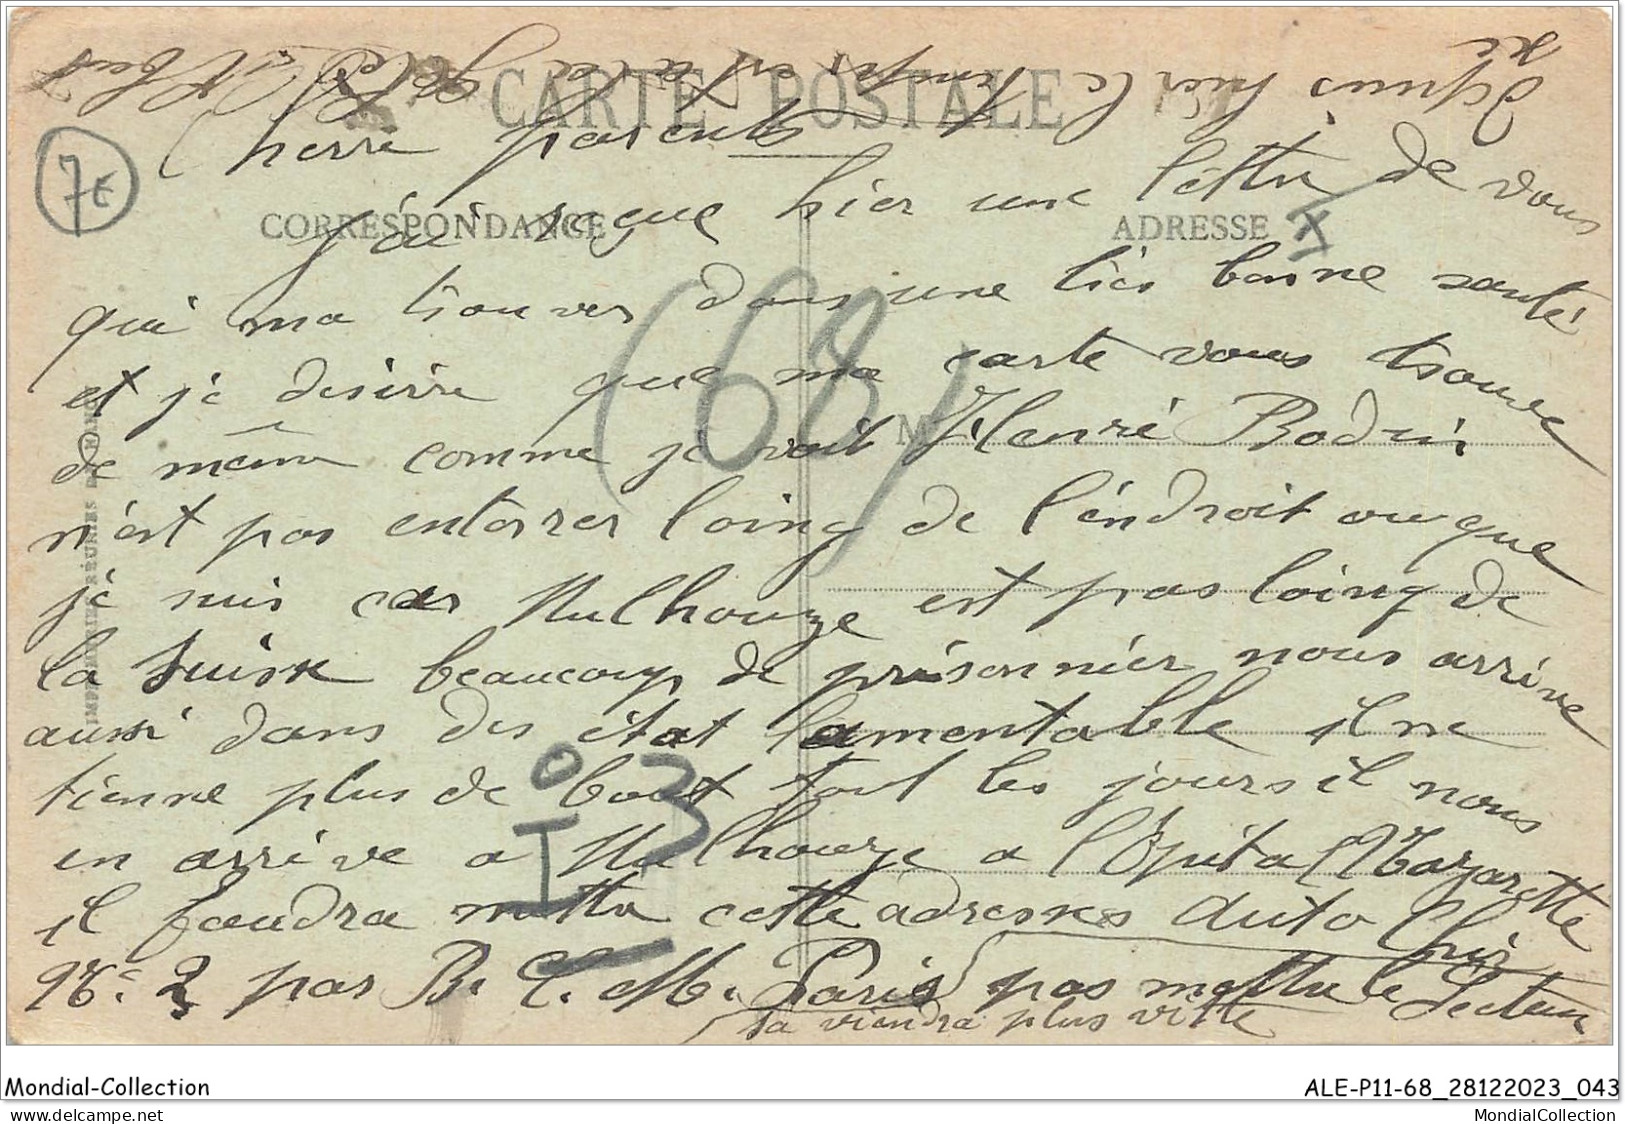 depuis hier le temps est a la gelé
CARTE POSTALE
7€
Cherre parents
CORRESPONDANCE
ADRESSE
j'ai reçue hier une lettre de vous
qui ma trouver dans une tres bonne santé
(68)
et je desirre que ma carte vous trouve
M
de mème comme je voit Henri Bodin
n'est pas enterrer loing de l'éndroit ou que
je suis car Mulhouze est pas loing de
la Suisse beaucoup de prisonnier nous arrive
aussi dans des état lamentable il ne
tienne plus de bout tout les jours il nous
en arrive a Mulhouze a l'Opital
il faudra mettre cette adresses Auto Chir
N° 2 par B. C. M. Paris pas mettre le Secteur
sa viendra plus vitte
IMPRIMERIES RÉUNIES DE NANCY
Mondial-Collection
ALE-P11-68_28122023_043
MondialCollection